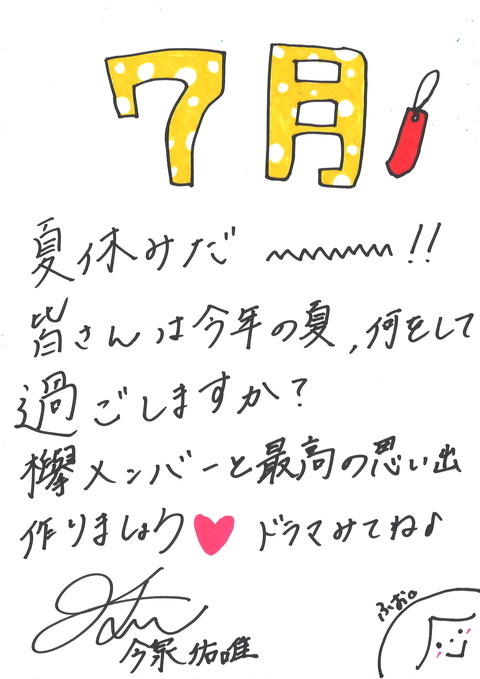 7月
夏休みだ〰〰〰!!
皆さんは今年の夏,何をして
過ごしますか?
欅メンバーと最高の思い出
作りましょう♥ドラマみてね♪
今泉佑唯
ふぉ。